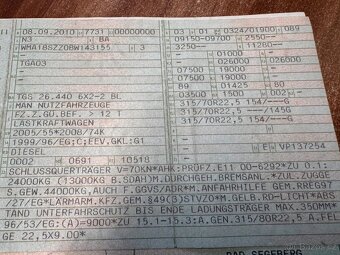 08.09.2010 7731 00000000 03 01 0324/01900 089
N3 BA 09150-09700 2550--
WMA18SZZ0BW143155 3 3250-- 11280--
- - 01000 -
TGA03 - 026000 026000
- 07500 19000 -
- 07500 19000 -
TGS 26.440 6X2-2 BL 89 01425 80
MAN NUTZFAHRZEUGE 03500 1500 002 -
FZ.Z.GÜ.BEF. > 12 T 315/70R22,5 154/---G
LASTKRAFTWAGEN 315/70R22,5 ---/145G
2005/55*2008/74K 315/70R22,5 154/---G
1999/96/EG;C;EEV,GKL:G1
DIESEL - - VP137254
0002 0691 10518
SCHLUSSQUERTRÄGER V=70KN*AHK:PRÜFZ.E11 00-6292*ZU 0.1:
24000KG (13000KG B.SDAH)M.DURCHGEH.BREMSANL.*ZUL.ZUGGE
S.GEW.44000KG,AUCH F.GGVS/ADR*M.ANFAHRHILFE GEM.RREG97
/27/EG*LÄRMARM.KFZ.GEM.§49(3)STVZO*M.GELB.RD-LICHT*ABS
TAND UNTERFAHRSCHUTZ BIS ENDE LADUNGSTRÄGER MAX.350MM*
96/53/EG:(A)=9000*ZU 15.1-15.3:A.GEN.315/80R22,5 A.FEL
GE 22,5X9.00*
BAD SEGEBERG